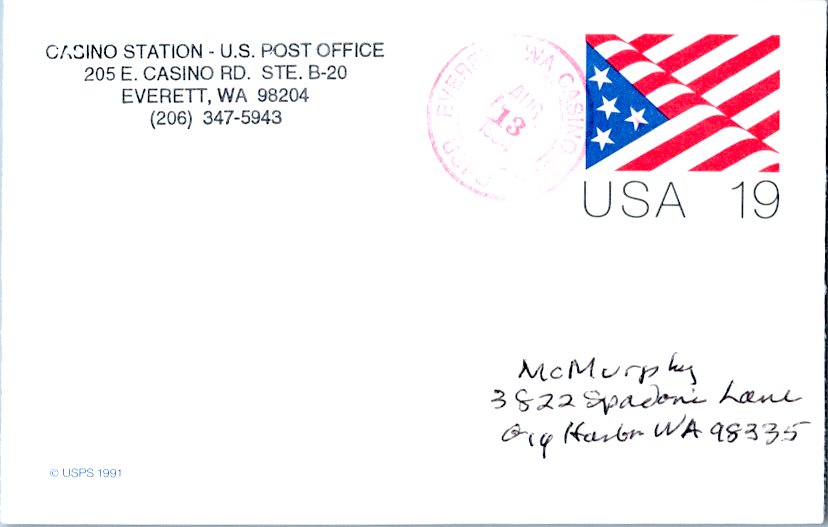 CASINO STATION - U.S. POST OFFICE
205 E. CASINO RD. STE. B-20
EVERETT, WA 98204
(206) 347-5943
EVERETT WA CASINO
AUG
13
USA 19
McMurphy
3822 Spadoni Lane
Gig Harbor WA 98335
© USPS 1991